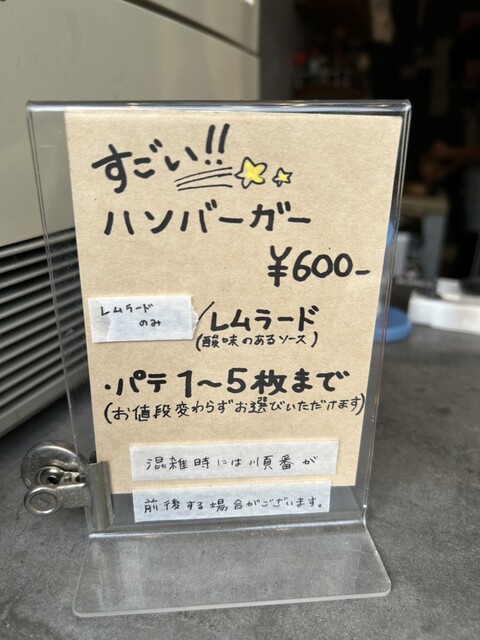 すごい!!
ハンバーガー
¥600-
レムラード
のみ
/レムラード
(酸味のあるソース)
・パテ1〜5枚まで
(お値段変わらずお選びいただけます)
混雑時には順番が
前後する場合がございます。